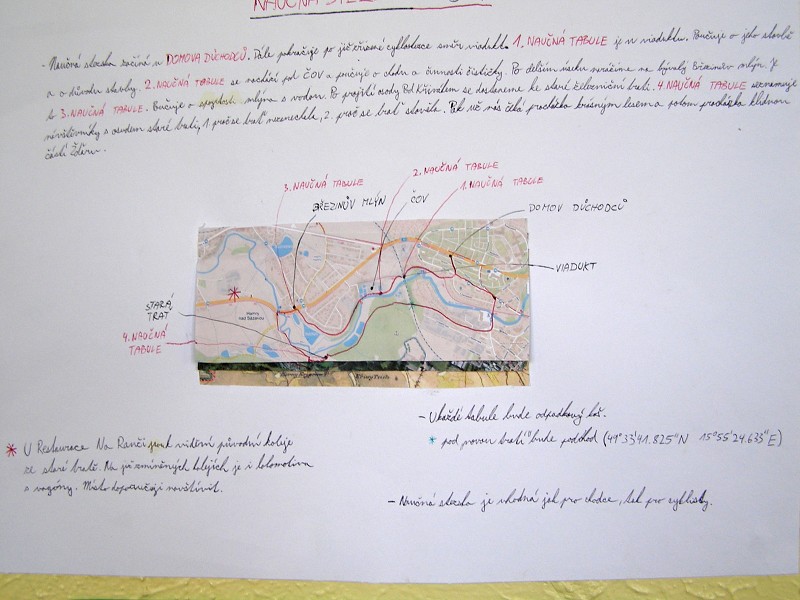 NAUČNÁ
- Naučná stezka začíná u DOMOVA DŮCHODCŮ. Dále pokračuje po již zřízené cyklostezce směr viadukt. 1. NAUČNÁ TABULE je u viaduktu. Poučuje o jeho stavbě
a o důvodu stavby. 2. NAUČNÁ TABULE se nachází pod ČOV a poučuje o chodu a činnosti čističky. Po delším úseku narážíme na bývalý Březinův mlýn. Je
to 3. NAUČNÁ TABULE. Poučuje o spojitosti mlýna s vodou. Po projití osady Pod Křivdálem se dostaneme ke staré železniční trati. 4. NAUČNÁ TABULE seznamuje
návštěvníky s osudem staré trati, 1. proč se trať nezanechala, 2. proč se trať stavěla. Pak už nás čeká procházka krásným lesem a potom procházka klidnou
částí Žďáru.
2. NAUČNÁ TABULE
3. NAUČNÁ TABULE
1. NAUČNÁ TABULE
BŘEZINŮV MLÝN
ČOV
DOMOV DŮCHODCŮ
VIADUKT
STARÁ
TRAŤ
Hamry
nad Sázavou
4. NAUČNÁ
TABULE
- U každé tabule bude odpadkový koš.
* pod novou tratí bude podchod (49°33'41.825"N 15°55'24.633"E)
* U Restaurace Na Ranči jsou k vidění původní koleje
ze staré tratě. Na již zmíněných kolejích je i lokomotiva
s vagóny. Místo doporučuji navštívit.
- Naučná stezka je vhodná jak pro chodce, tak pro cyklisty.